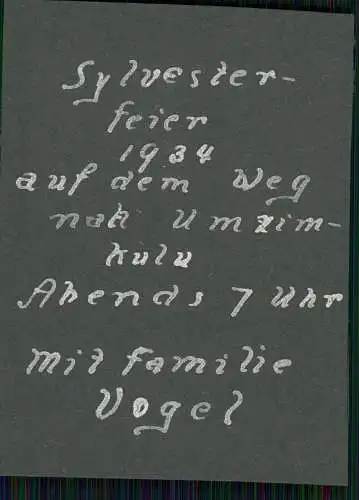 Sylvester-
feier
1934
auf dem Weg
nach Umzim-
kulu
Abends 7 Uhr
Mit Familie
Vogel